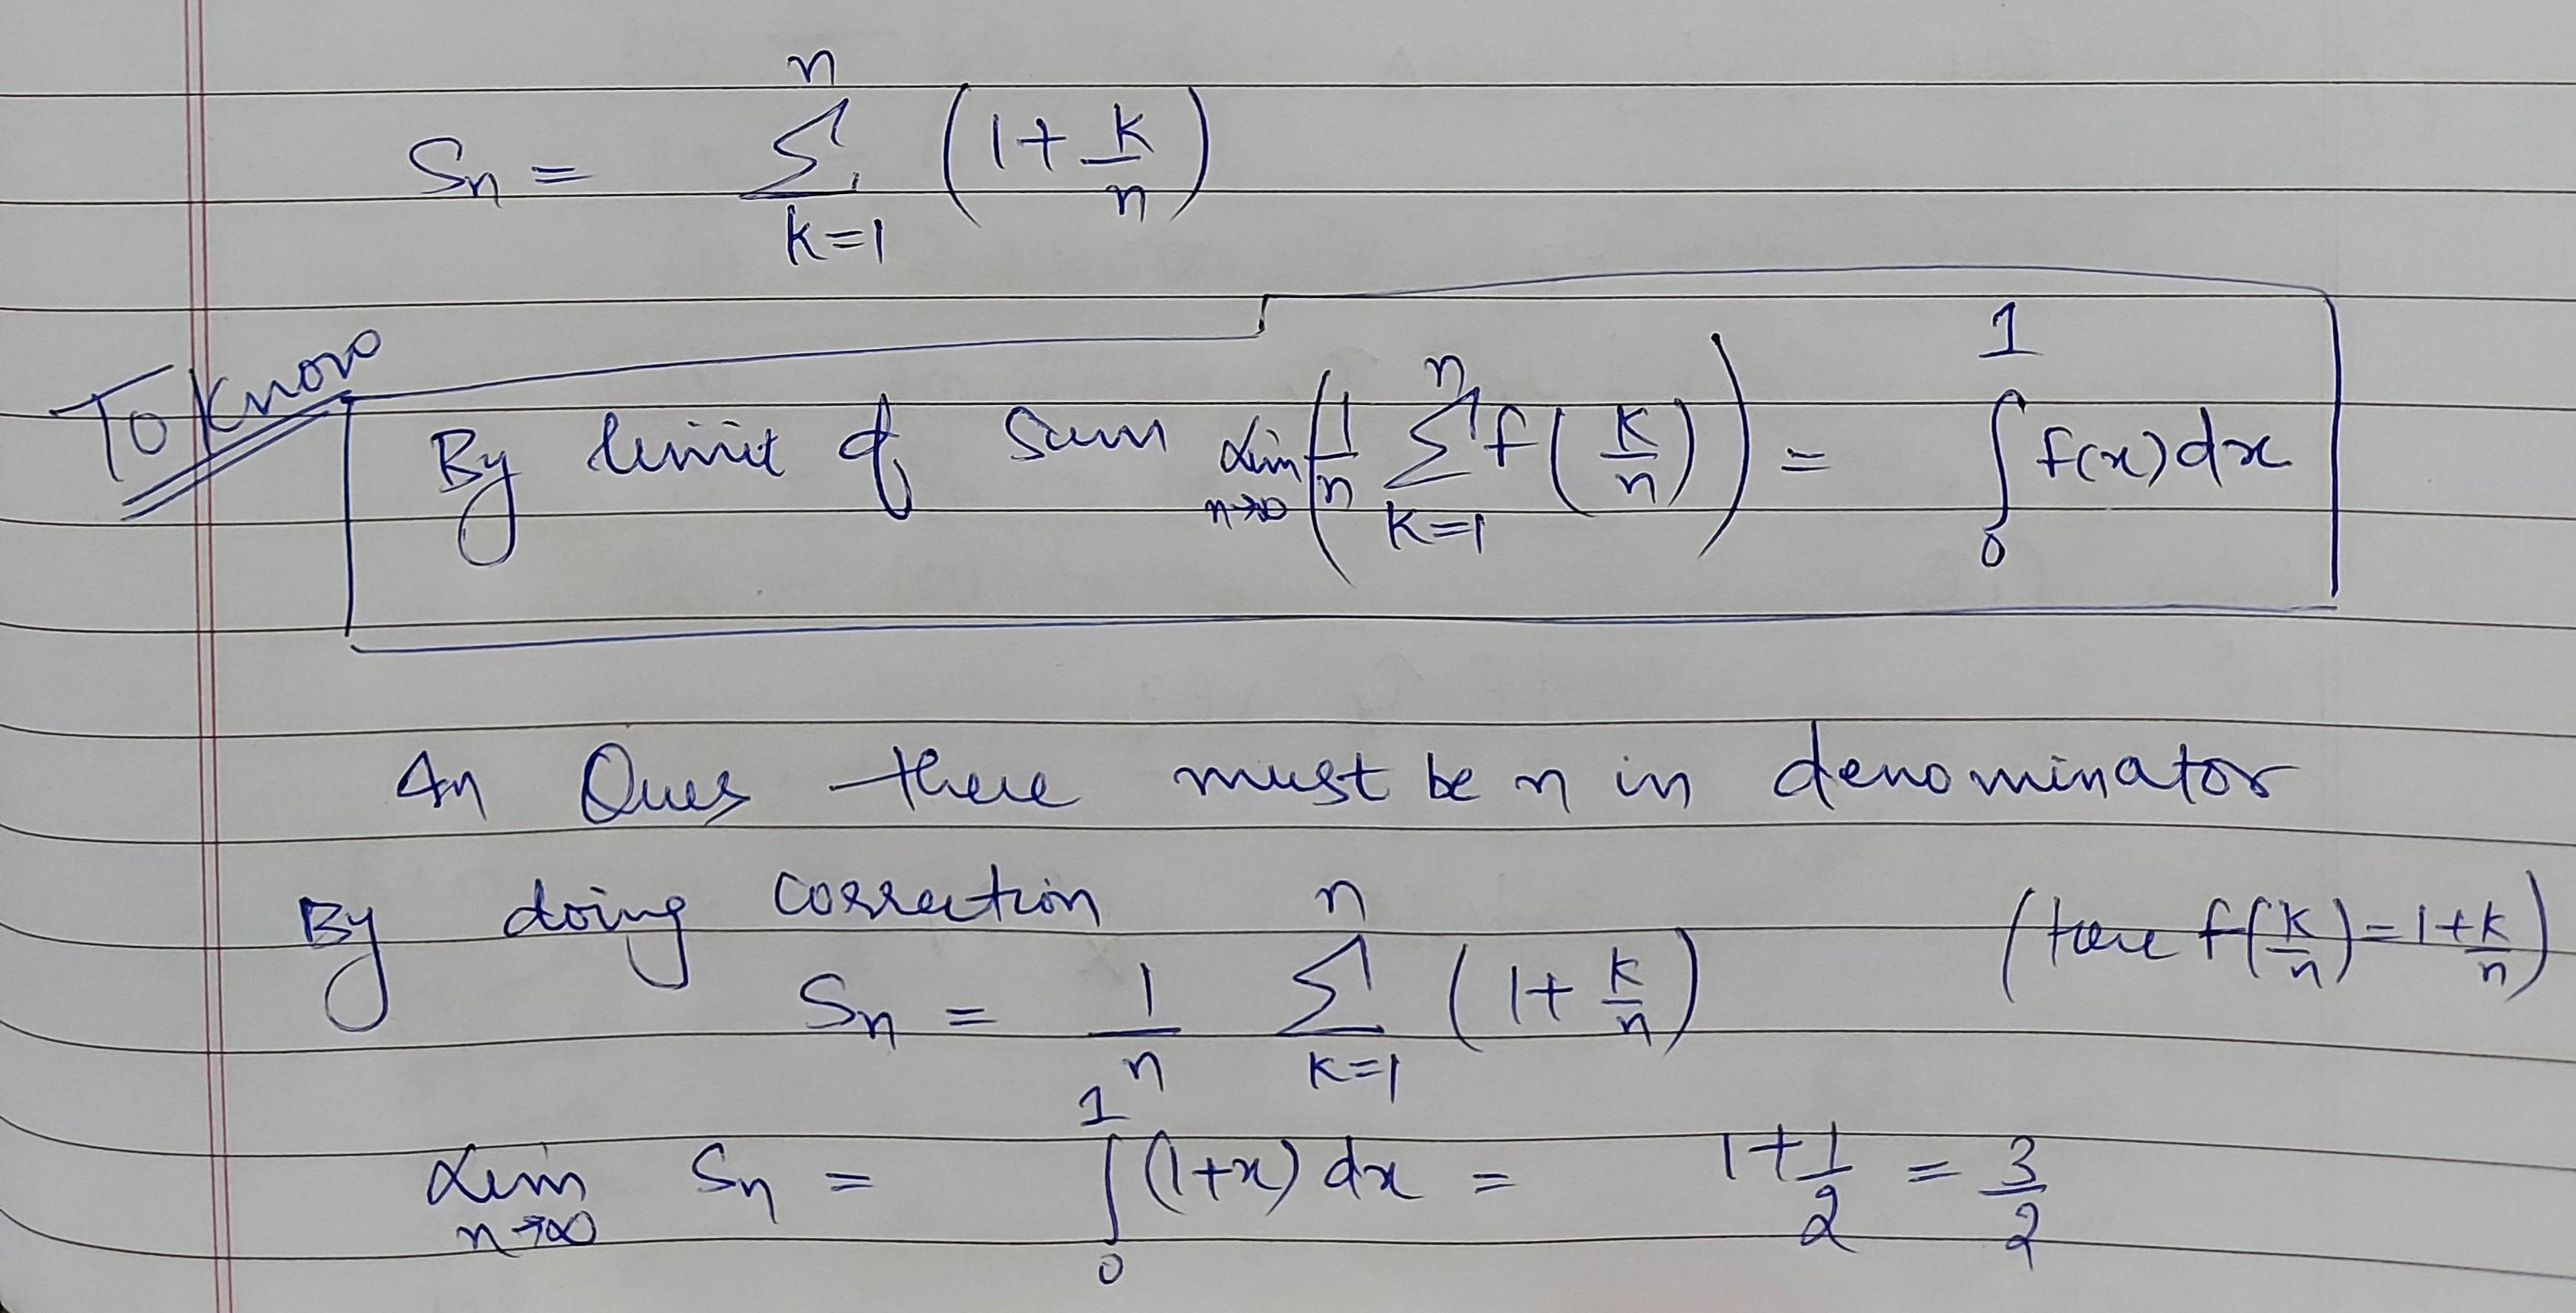 Sn = \sum_{k=1}^{n} (1 + \frac{k}{n})
To Know
By limit of Sum \lim_{n→∞} (\frac{1}{n} \sum_{k=1}^{n} f(\frac{k}{n})) = \int_{0}^{1} f(x) dx
In Ques there must be n in denominator
By doing correction
Sn = \frac{1}{n} \sum_{k=1}^{n} (1 + \frac{k}{n}) (here f(\frac{k}{n}) = 1 + \frac{k}{n})
\lim_{n→∞} Sn = \int_{0}^{1} (1+x) dx = 1 + \frac{1}{2} = \frac{3}{2}